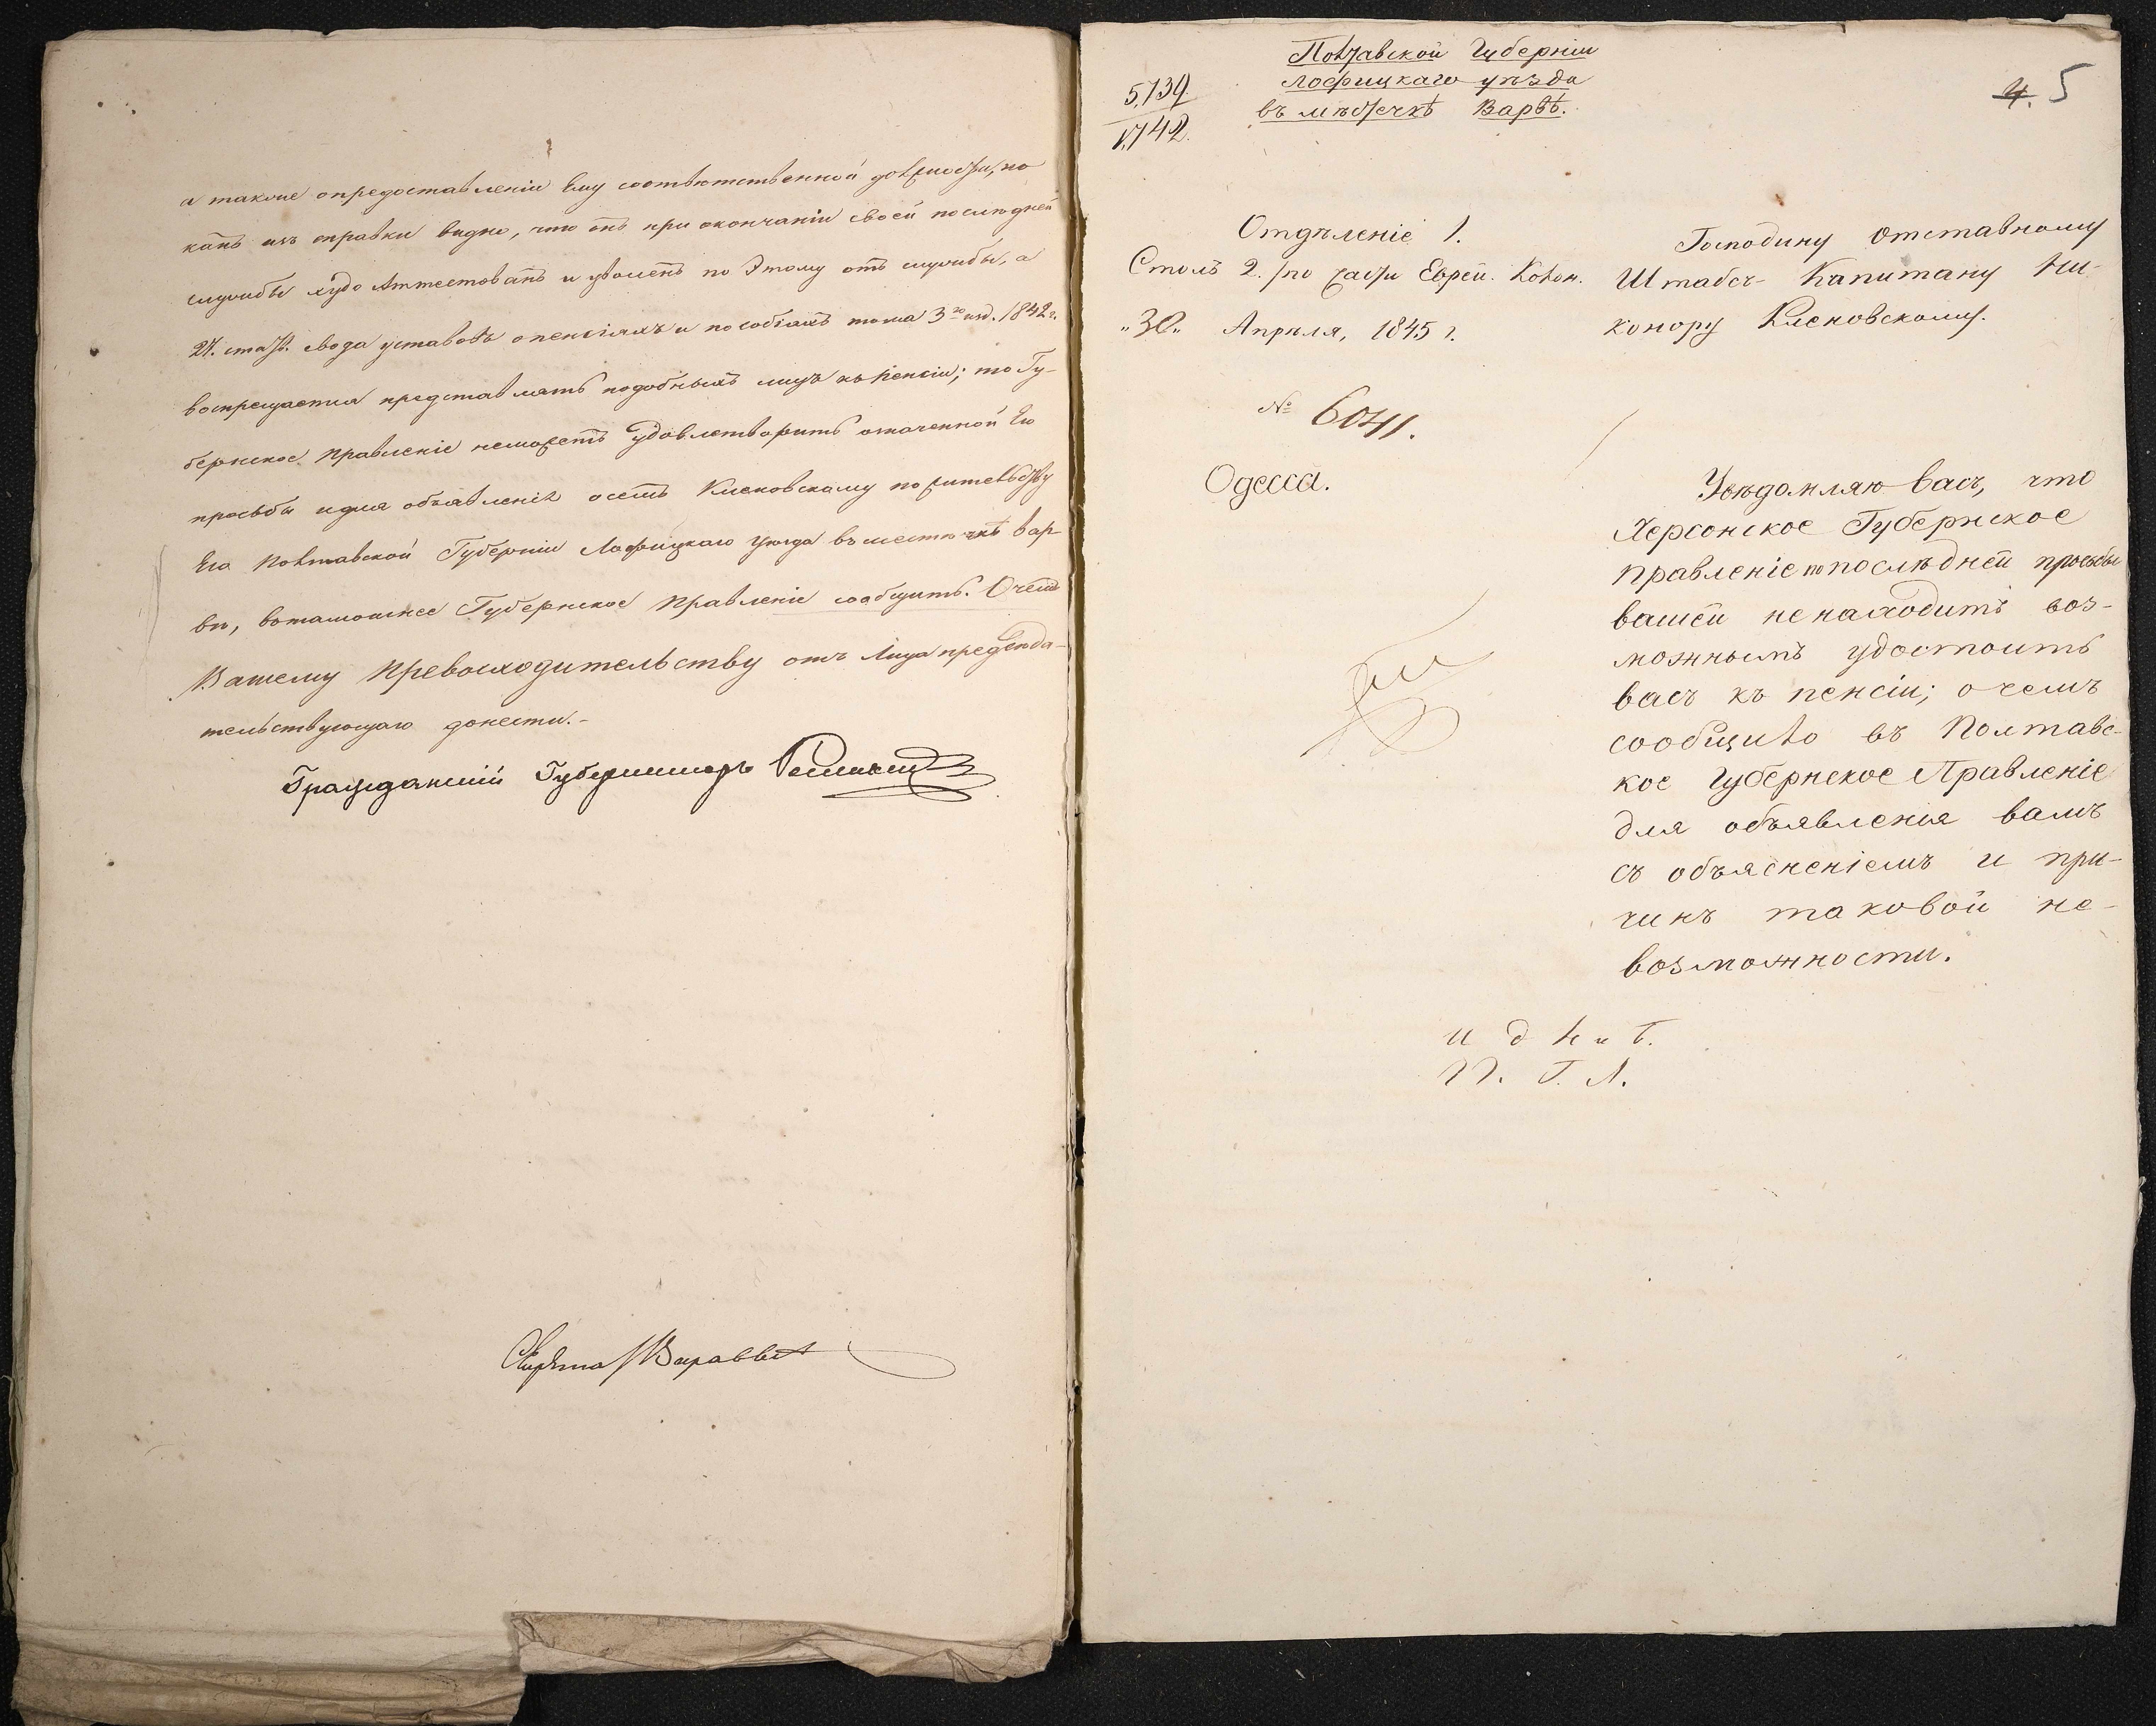 а также опредоставленіи Ему соотвѣтственной должности, но
какъ изъ справки видно, что онъ при окончаніи своей последней
службы худо Аттестованъ и уволенъ по Этому отъ службы, а
24. стат. свода уставовъ о пенсіяхъ и пособіяхъ тома 3го изд. 1842 г.
воспрещается представлять подобныхъ лицъ къ пенсіи; то Гу-
бернское правленіе неможетъ удовлетворить означенной Его
просьбы идля объявленія осемъ Клековскому по жительству
Его Полтавской Губерніи Лофицкаго уезда въ местечкѣ Вар-
вѣ, вътамошнее Губернское Правленіе сообщитъ. О чемъ
Вашему Превосходительству отъ Лица предсѣда-
тельствующаго донести.-
Гражданскій Губернаторъ
5,139.
1,742.
Полтавской Губерніи
Лофицкаго уѣзда
въ мѣстечкѣ Варвѣ.
4. 5
Отдѣленіе 1.
Столъ 2. /по части Еврей. Колон.
„30„ Апрѣля, 1845 г.
№ 6041.
Одесса.
Господину отставному
Штабсъ-Капитану Ни-
конору Клековскому.
Увѣдомляю васъ, что
Херсонское Губернское
Правленіе по послѣдней просьбѣ
вашей ненаходитъ воз-
можнымъ удостоить
васъ къ пенсіи; о чемъ
сообщило въ Полтавс-
кое Губернское Правленіе
для объявленія вамъ
съ объясненіемъ и при-
чинъ таковой не-
возможности.
и д
П. Г. Л.